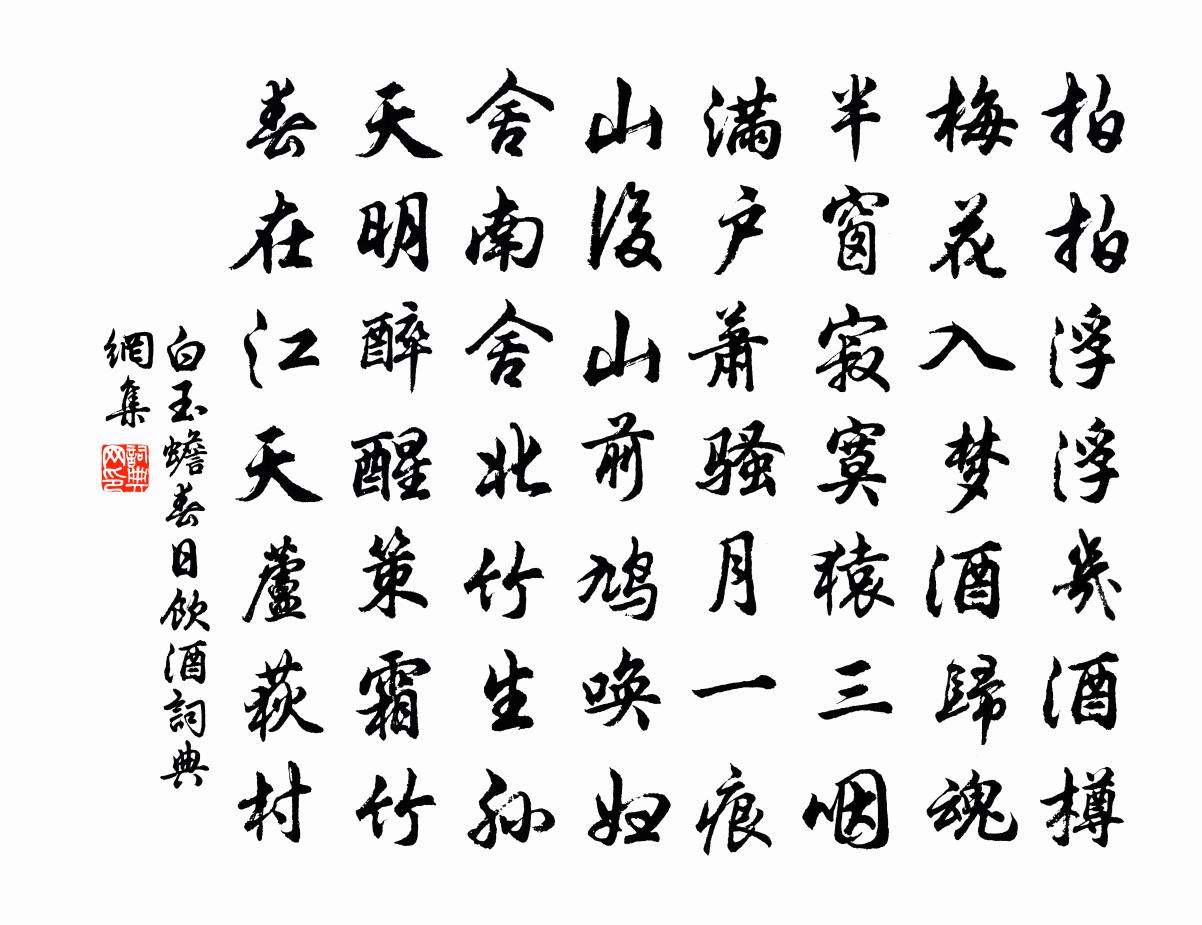 拍拍浮浮幾酒樽
梅花入梦酒歸魂
半窗寂寞猿三咽
满户萧骚月一痕
山後山前鸠唤妇
舍南舍北竹生孙
天明醉醒策霜竹
春在江天蘆荻村
白玉蟾春日飲酒詞典
網集
詞典网印